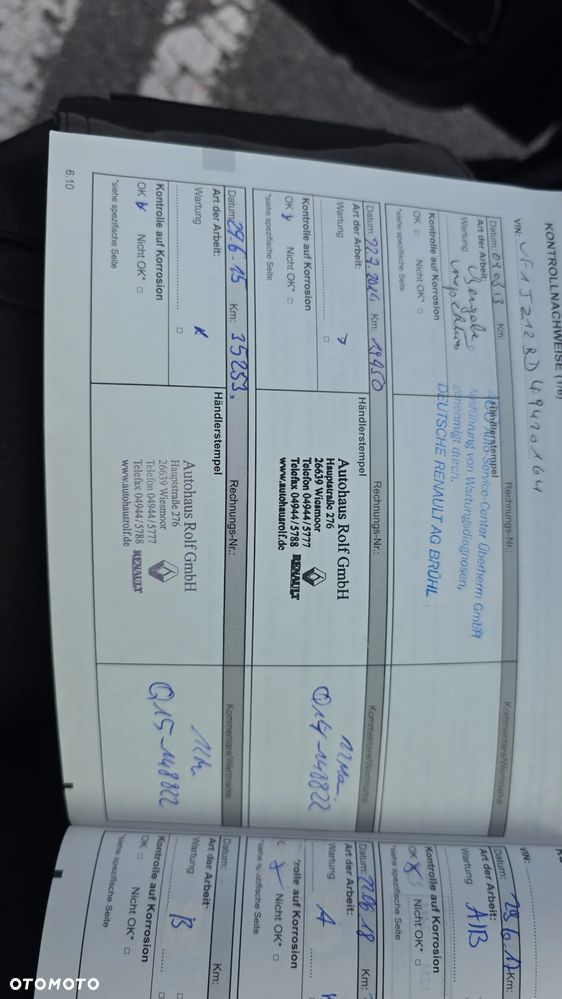 KONTROLLNACHWEISE (1/6)
VIN:
Datum: Km:
Rechnungs-Nr.:
Art der Arbeit:
Wartung
Übergabe
Inspektion
Händlerstempel
Kommentare/Wertmarke
Auto-Service-Center Überherrn GmbH
Ausführung von Wartungsdiagnosen,
genehmigt durch,
DEUTSCHE RENAULT AG BRÜHL
Kontrolle auf Korrosion
OK □ Nicht OK* □
*siehe spezifische Seite
Datum: 22.7.2014 Km: 19450
Rechnungs-Nr.:
Art der Arbeit:
Wartung
Händlerstempel
Kommentare/Wertmarke
Autohaus Rolf GmbH
Hauptstraße 276
26639 Wiesmoor
Telefon 04944/5777
Telefax 04944/5788
www.autohausrolf.de
RENAULT
Q14-148822
Kontrolle auf Korrosion
OK Nicht OK* □
*siehe spezifische Seite
Datum: 29.6.15 Km: 35253.
Rechnungs-Nr.:
Art der Arbeit:
Wartung
Händlerstempel
Kommentare/Wertmarke
Autohaus Rolf GmbH
Hauptstraße 276
26639 Wiesmoor
Telefon 04944/5777
Telefax 04944/5788
www.autohausrolf.de
RENAULT
Q15-148822
Kontrolle auf Korrosion
OK Nicht OK* □
*siehe spezifische Seite
6.10
VIN:
Datum: 29.6.17 Km:
Art der Arbeit:
Wartung A/B
Kontrolle auf Korrosion
OK Nicht OK* □
*siehe spezifische Seite
Datum: 22.06.18 Km:
Art der Arbeit:
Wartung A
rolle auf Korrosion
Nicht OK* □
*siehe spezifische Seite
Datum: Km:
Art der Arbeit:
Wartung B
Kontrolle auf Korrosion
OK □ Nicht OK* □
*siehe spezifische Seite
OTOMOTO